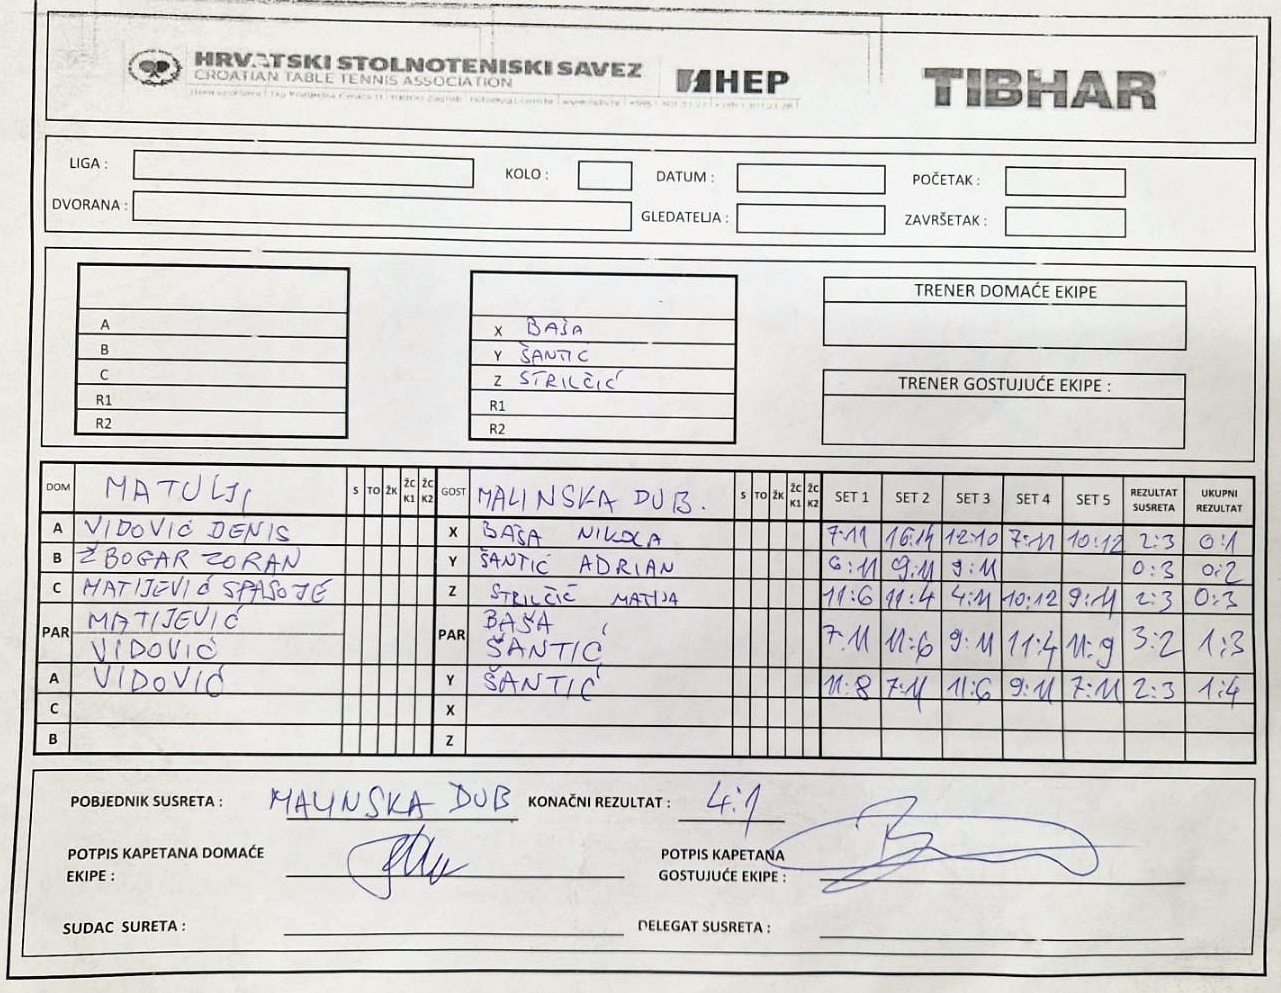 HRVATSKI STOLNOTENISKI SAVEZ
CROATIAN TABLE TENNIS ASSOCIATION
HEP
TIBHAR
LIGA : KOLO : DATUM : POČETAK :
DVORANA : GLEDATELJA : ZAVRŠETAK :
TRENER DOMAĆE EKIPE
A
B
C
R1
R2
X BAŠA
Y ŠANTIĆ
Z STRILČIĆ
R1
R2
TRENER GOSTUJUĆE EKIPE :
DOM MATULJI S TO ŽK ŽC K1 ŽC K2 GOST MALINSKA DUB. S TO ŽK ŽC K1 ŽC K2 SET 1 SET 2 SET 3 SET 4 SET 5 REZULTAT SUSRETA UKUPNI REZULTAT
A VIDOVIĆ DENIS X BAŠA NIKOLA 7:11 16:14 12:10 7:11 10:12 2:3 0:1
B ŽBOGAR ZORAN Y ŠANTIĆ ADRIAN 6:11 9:11 9:11 0:3 0:2
C MATIJEVIĆ SPASOJE Z STRILČIĆ MATIJA 11:6 11:4 4:11 10:12 9:11 2:3 0:3
PAR MATIJEVIĆ PAR BAŠA 7:11 11:6 9:11 11:4 11:9 3:2 1:3
VIDOVIĆ ŠANTIĆ
A VIDOVIĆ Y ŠANTIĆ 11:8 7:11 11:6 9:11 7:11 2:3 1:4
C X
B Z
POBJEDNIK SUSRETA : MALINSKA DUB KONAČNI REZULTAT : 4:1
POTPIS KAPETANA DOMAĆE EKIPE :
POTPIS KAPETANA GOSTUJUĆE EKIPE :
SUDAC SURETA : DELEGAT SUSRETA :